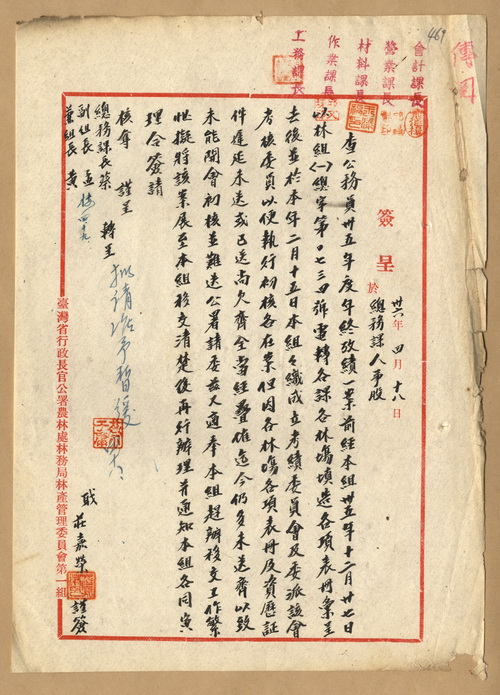 469
傳閱
會計課長
營業課長
材料課長
作業課長
工務課長
簽呈
卅六年四月十八日
於總務課人事股
查公務員卅五年度年終考績一案前經本組卅五年十二月廿七日
以林組(一)總字第〇七三四號電轉各課各林場填造各項表冊彙呈
去後並於本年二月十五日本組組織成立考績委員會及委派該會
考核委員以便執行初核各在案但因各林場各項表冊及資歷証
件遲延未送或已送尚欠齊全當經疊催迄今仍多未送齊以致
未能開會初核並難送公署請委茲又適奉本組趕辦移交工作繁
忙擬將該案展至本組移交清楚後再行辦理并通知本組各同寅
理合簽請
核奪 謹呈
總務課長蔡 轉呈
副組長 孟
董組長 黃
擬請准予暫緩
職 莊嘉 謹簽
臺灣省行政長官公署農林處林務局林產管理委員會第一組